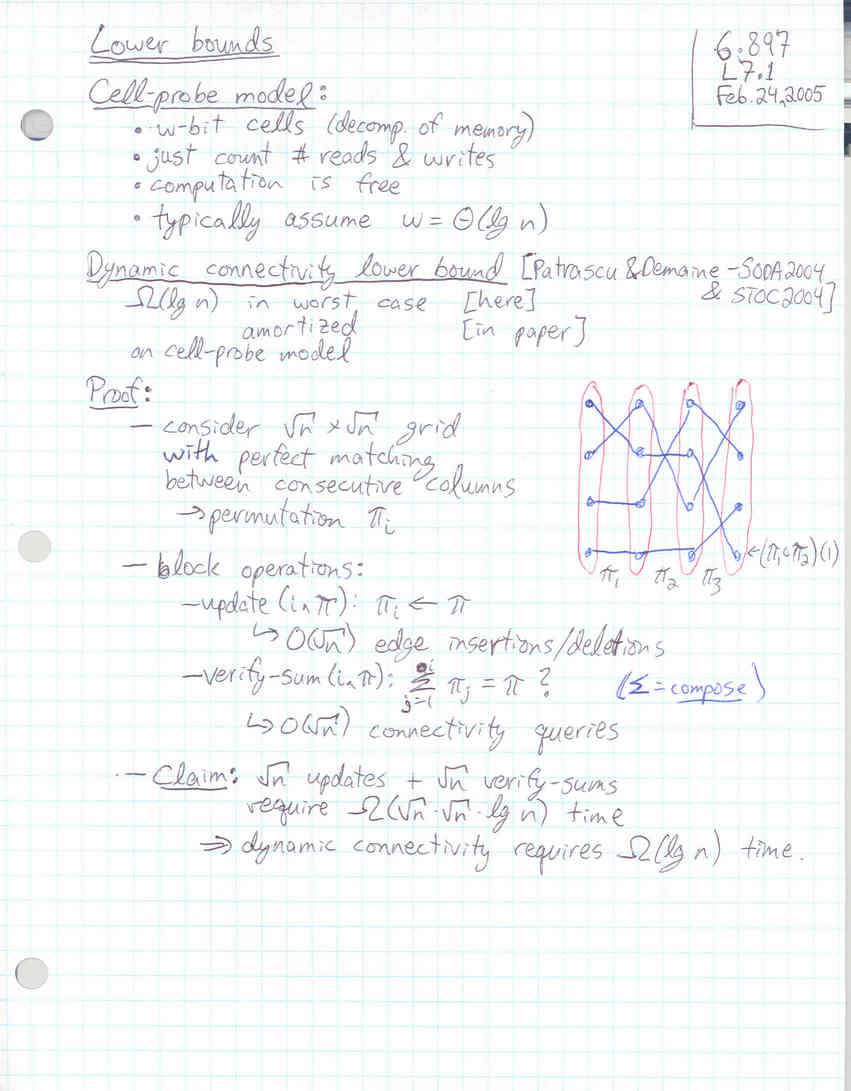 Lower bounds
6.897
L7.1
Feb. 24, 2005
Cell-probe model:
• w-bit cells (decomp. of memory)
• just count # reads & writes
• computation is free
• typically assume w = Θ(lg n)
Dynamic connectivity lower bound [Patrascu & Demaine - SODA 2004
& STOC 2004]
Ω(lg n) in worst case [here]
amortized [in paper]
on cell-probe model
Proof:
— consider √n × √n grid
with perfect matching
between consecutive columns
→ permutation πᵢ
π₁ π₂ π₃
← (π₁∘π₂)(1)
— block operations:
— update(i, π): πᵢ ← π
↳ O(√n) edge insertions/deletions
— verify-sum(i, π): Σ_{j=1}^{i} πⱼ = π ? (Σ = compose)
↳ O(√n) connectivity queries
— Claim: √n updates + √n verify-sums
require Ω(√n · √n · lg n) time
⇒ dynamic connectivity requires Ω(lg n) time.